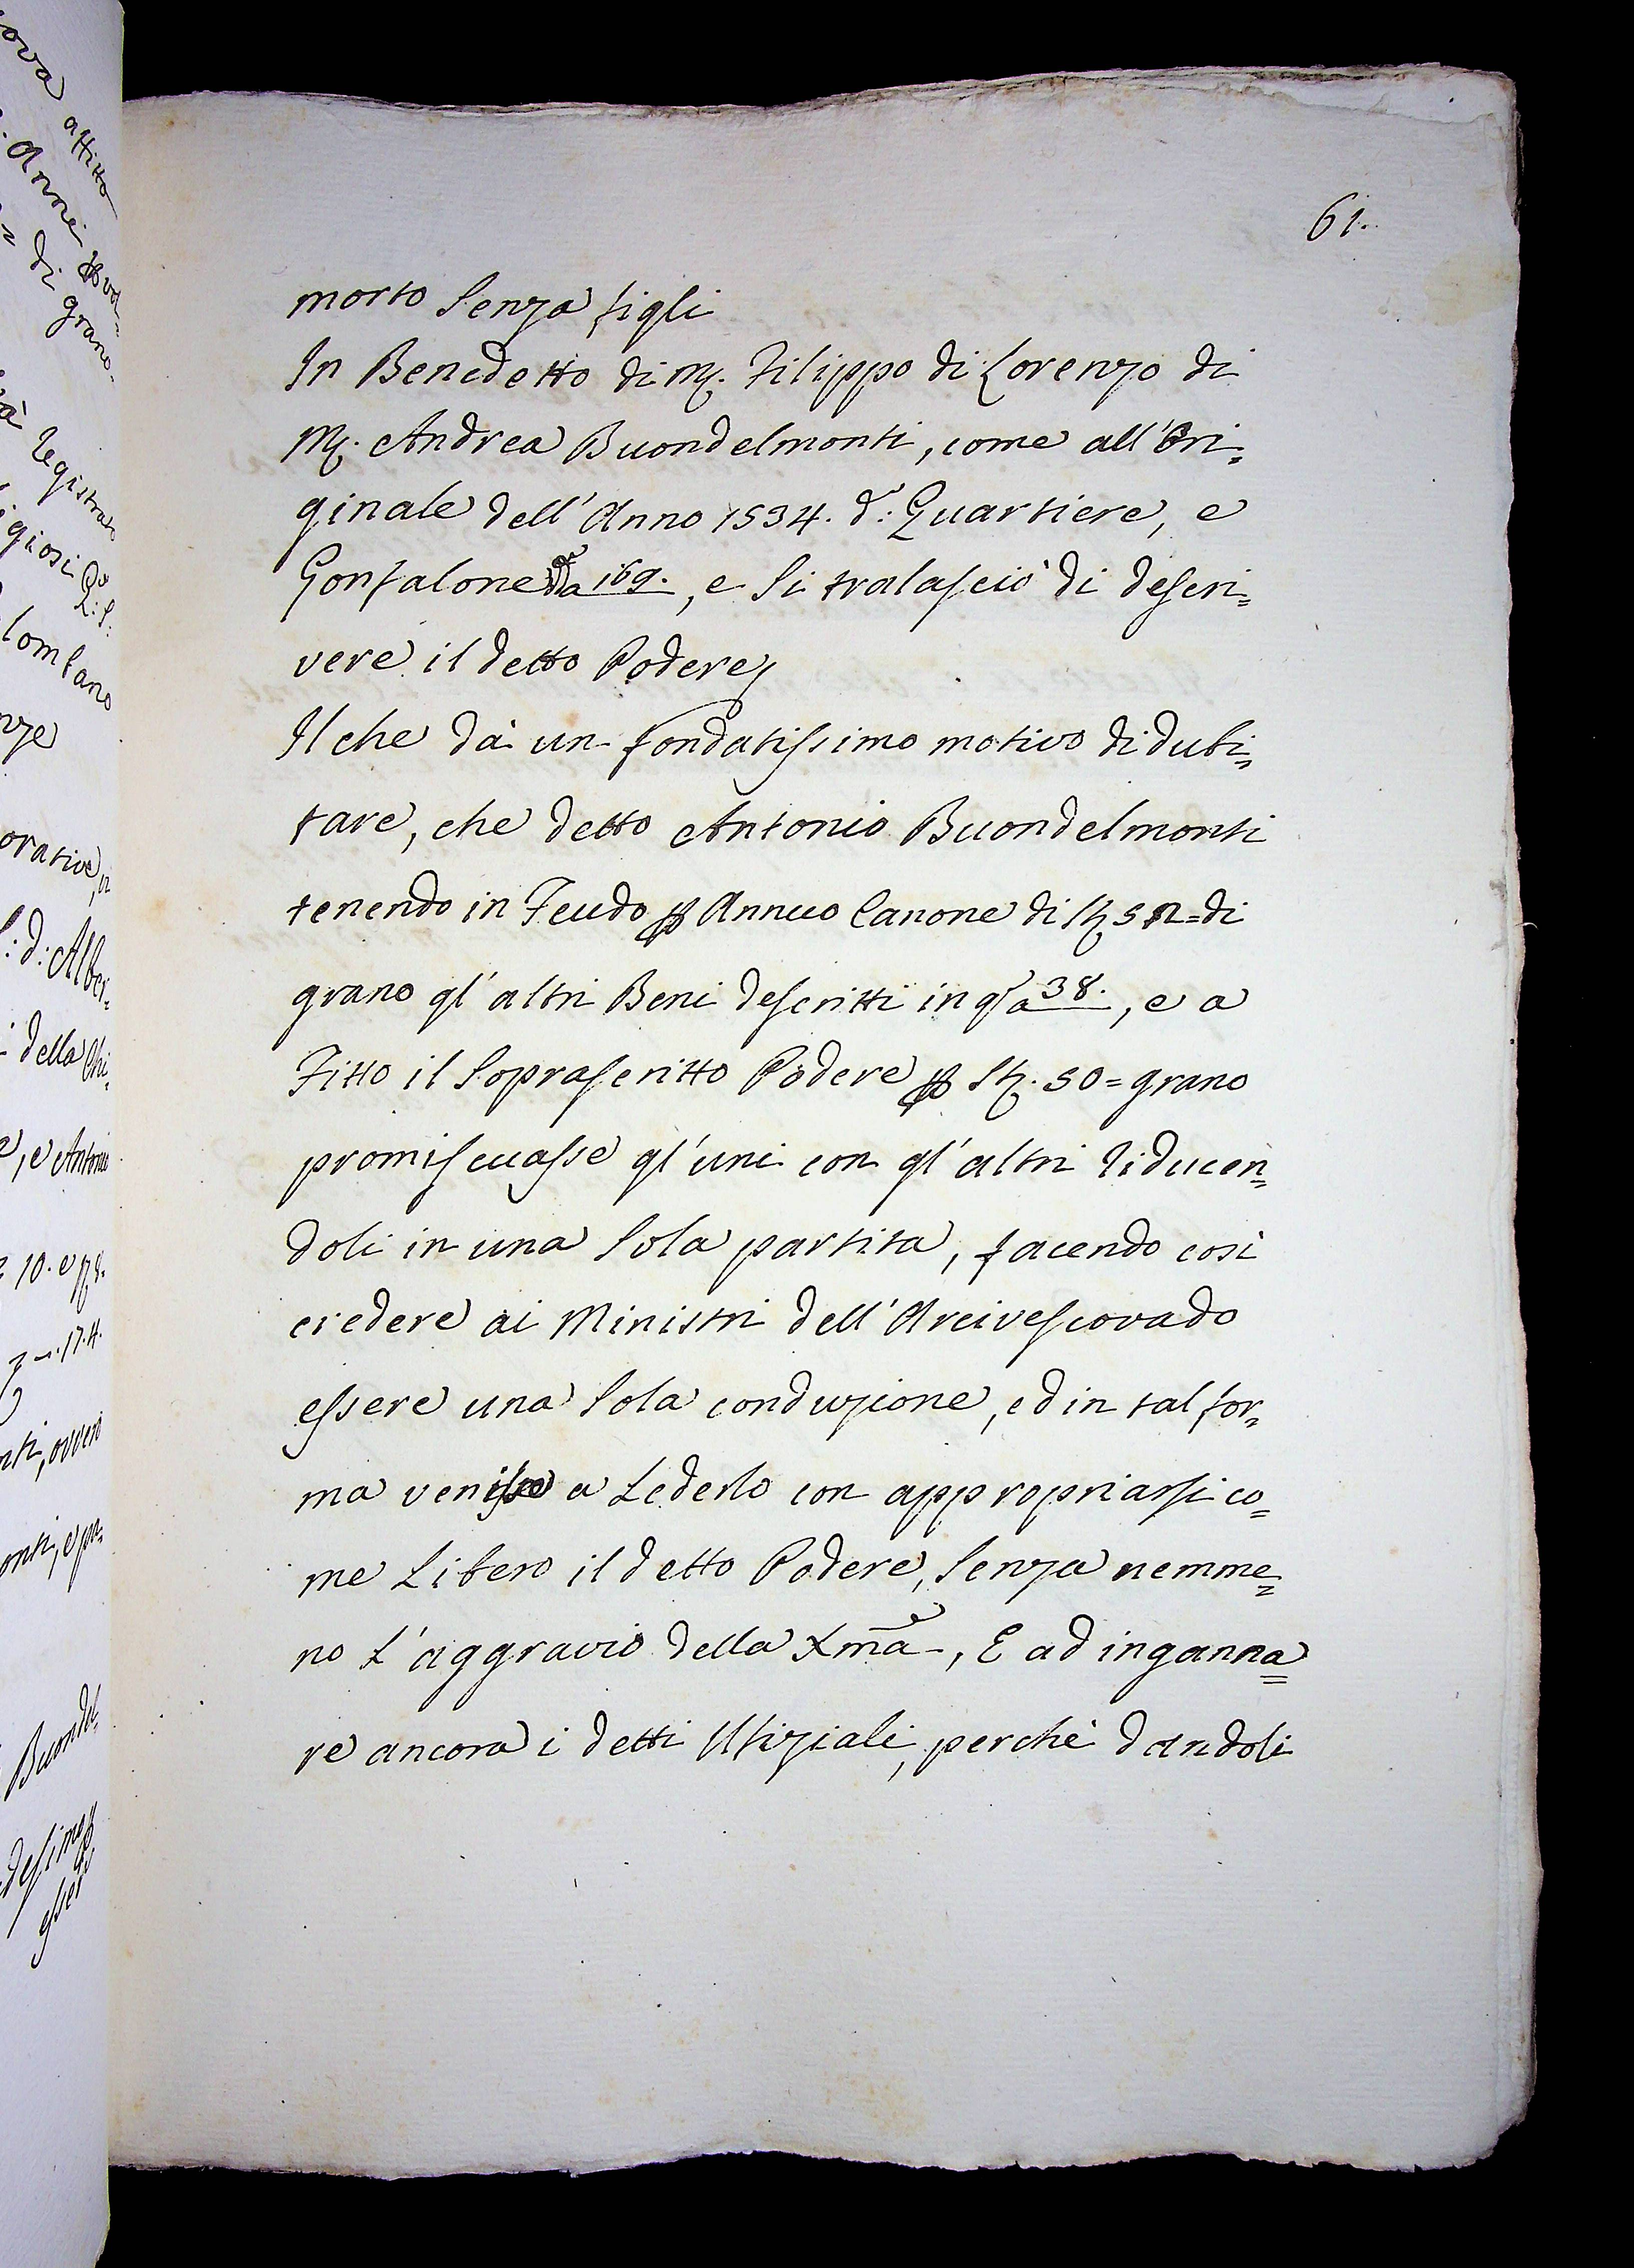 61.
morto Senza figli
In Benedetto di M. Filippo di Lorenzo di
M. Andrea Buondelmonti, come all'Ori=
ginale dell'Anno 1534. d.º Quartiere, e
Gonfalone da 169., e Si tralasciò di descri=
vere il detto Podere,
Il che dà un fondatissimo motivo di dubi=
tare, che detto Antonio Buondelmonti
tenendo in Feudo p Annuo Canone di St. 52= di
grano gl'altri Beni descritti in qº a 38., e a
Fitto il Soprascritto Podere p St. 50= grano
promiscuasse gl'uni con gl'altri riducen=
doli in una Sola partita, facendo così
credere ai Ministri dell'Arcivescovado
essere una Sola conduzione, ed in tal for=
ma venisse a Lederlo con appropriarsi co=
me Libero il detto Podere, Senza nemme=
no L'aggravio della Xma, E ad inganna=
re ancora i detti Ufiziali, perchè dandoli
attitto
Anni
di grano.
Registrato
orative,
d: Alber=
della Chi=
, e Antonio
10. e
17.4.
, ovvero
Buondel=
esser